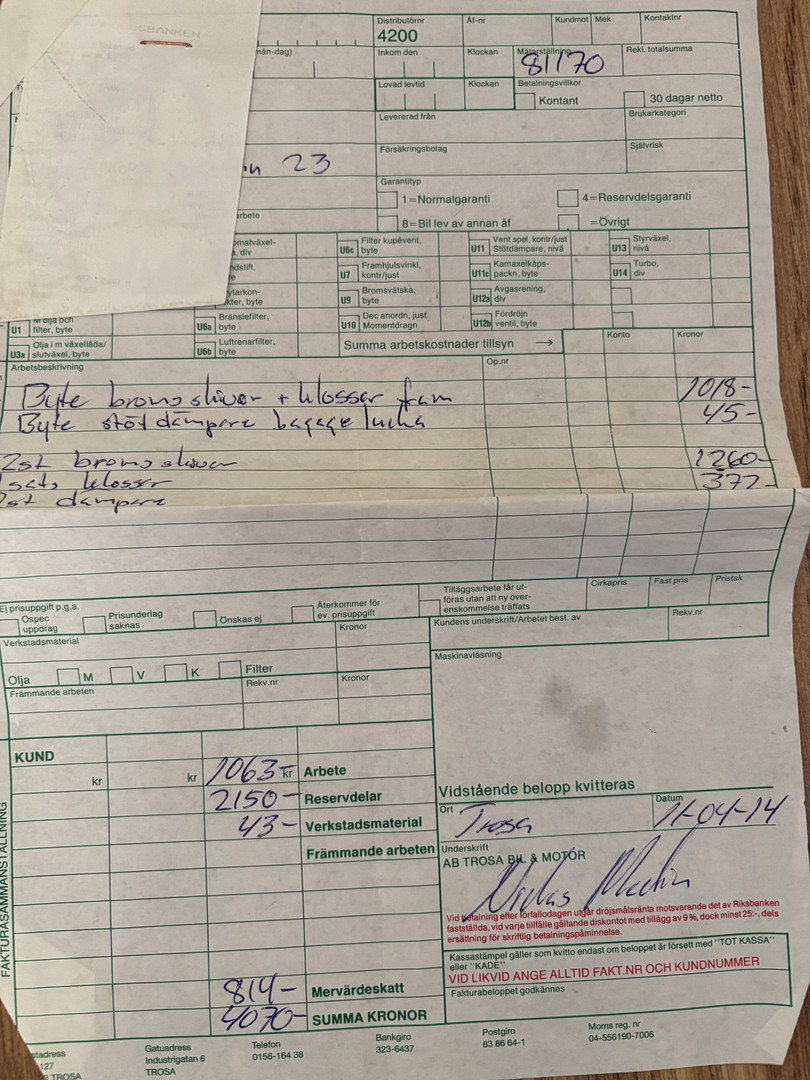 Distributörnr
4200
Åf-nr
Kundmot
Mek
Kontaktnr
mån-dag)
Inkom den
Klockan
Mätarställning
81170
Rekl. totalsumma
Lovad levtid
Klockan
Betalningsvillkor
Kontant
30 dagar netto
Levererad från
Brukarkategori
23
Försäkringsbolag
Självrisk
Garantityp
1=Normalgaranti
4=Reservdelsgaranti
8=Bil lev av annan åf
=Övrigt
U6c Filter kupévent, byte
U11 Vent spel, kontr/just Stötdämpare, nivå
U13 Styrväxel, nivå
U7 Framhjulsvinkl, kontr/just
U11c Kamaxelkåps-packn, byte
U14 Turbo, div
U9 Bromsvätska, byte
U12a Avgasrening, div
U1 filter, byte
U6a Bränslefilter, byte
U10 Dec anordn, just Momentdragn
U12b Fördröjn ventil, byte
U3a Olja i m växellåda/ slutväxel, byte
U6b Luftrenarfilter, byte
Summa arbetskostnader tillsyn →
Konto
Kronor
Arbetsbeskrivning
Op.nr
Byte bromsskivor + klossar fram 1018-
Byte stötdämpare bagagelucka 45-
2st bromsskivor 1260-
1 sats klossar 372-
2st dämpare
Ej prisuppgift p.g.a.
Ospec uppdrag
Prisunderlag saknas
Önskas ej
Återkommer för ev. prisuppgift
Tilläggsarbete får ut-
föras utan att ny över-
enskommelse träffats
Cirkapris
Fast pris
Pristak
Verkstadsmaterial
Kronor
Kundens underskrift/Arbetet best. av
Rekv.nr
Olja M V K Filter
Maskinavläsning
Främmande arbeten
Rekv.nr
Kronor
FAKTURASAMMANSTÄLLNING
KUND
kr kr 1063- kr Arbete
2150- Reservdelar
43- Verkstadsmaterial
Främmande arbeten
814- Mervärdeskatt
4070- SUMMA KRONOR
Vidstående belopp kvitteras
Ort
Trosa
Datum
11-04-14
Underskrift
AB TROSA BIL & MOTOR
Niclas
Vid betalning efter förfallodagen utgår dröjsmålsränta motsvarande det av Riksbanken
fastställda, vid varje tillfälle gällande diskontot med tillägg av 9 %, dock minst 25:-, dels
ersättning för skriftlig betalningspåminnelse.
Kassastämpel gäller som kvitto endast om beloppet är försett med "TOT KASSA"
eller "KADE"
VID LIKVID ANGE ALLTID FAKT.NR OCH KUNDNUMMER
Fakturabeloppet godkännes
127
TROSA
Gatuadress
Industrigatan 6
TROSA
Telefon
0156-164 38
Bankgiro
323-6437
Postgiro
83 86 64-1
Moms reg. nr
04-556190-7006